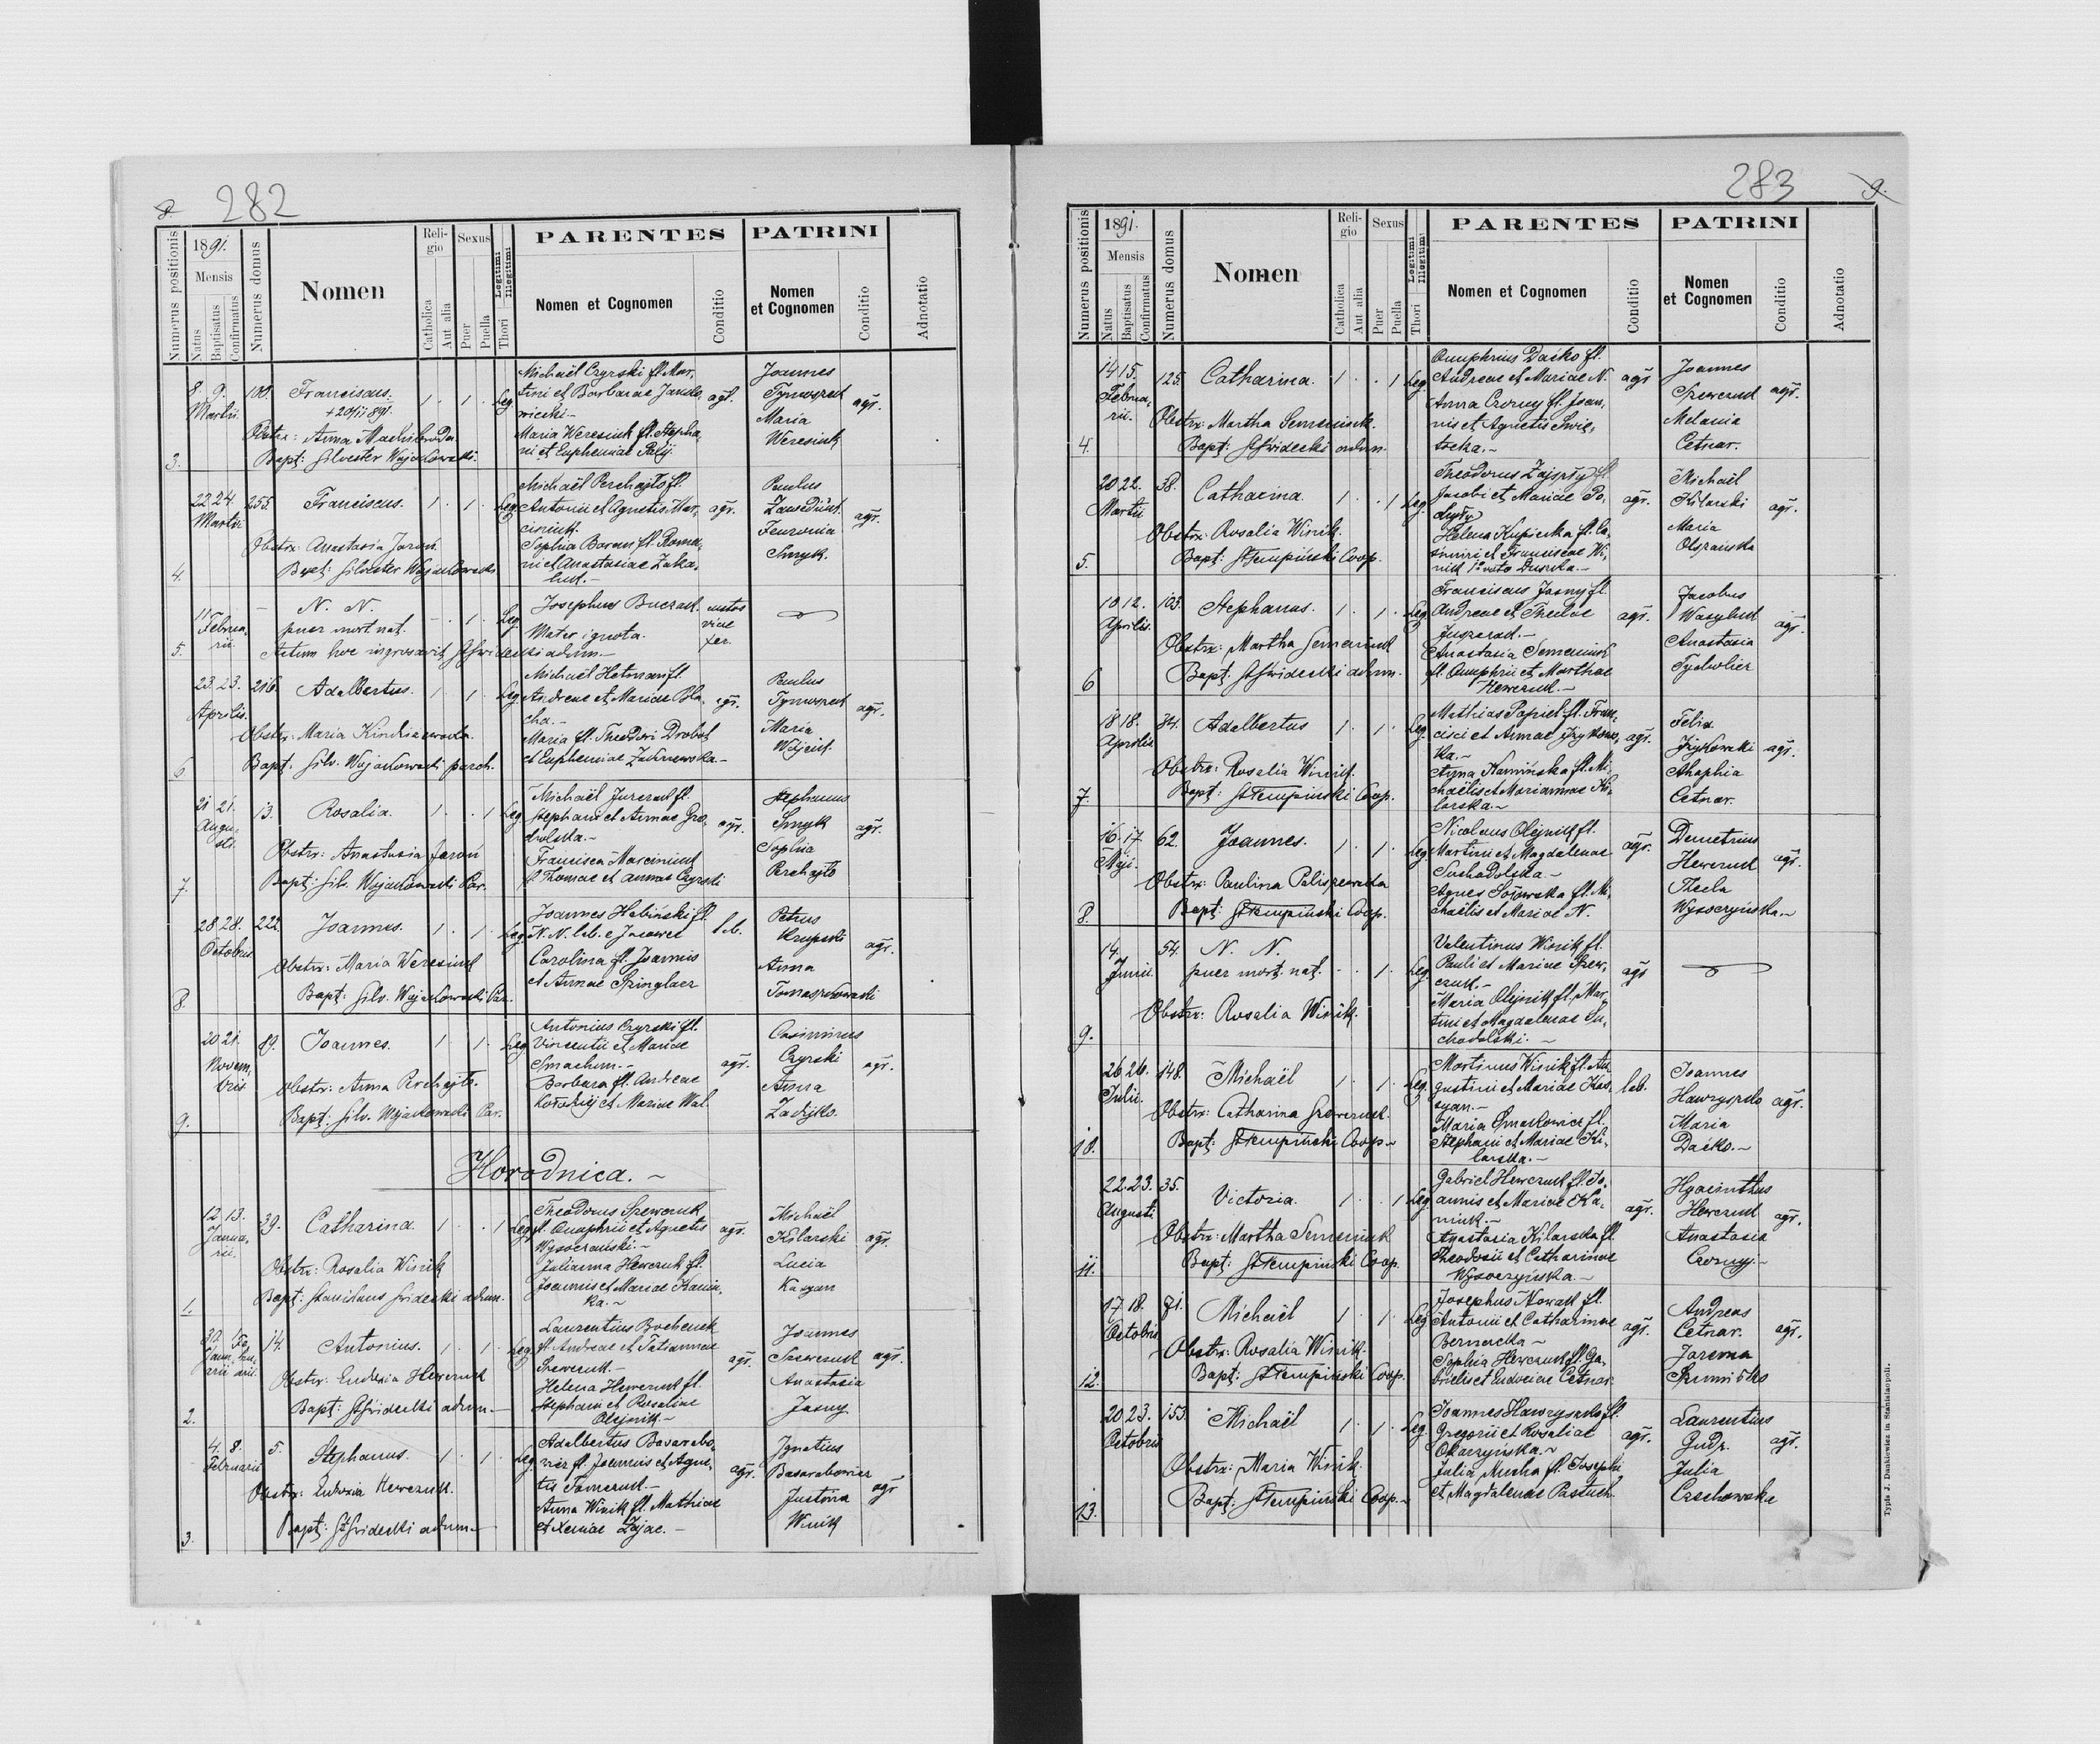 282
8.
Numerus positionis
1891.
Mensis
Natus
Baptisatus
Confirmatus
Numerus domus
Nomen
Religio
Catholica
Aut alia
Sexus
Puer
Puella
Legitimi
Illegitimi
Thori
PARENTES
Nomen et Cognomen
Conditio
PATRINI
Nomen
et Cognomen
Conditio
Adnotatio
3.
8. 9. Martii
100.
Franciscus.
1. 1. Leg.
Obstx: Anna
Bapt: Silvester Wojakowski.
Michaël Czyrski fl. Mar,
tini et Barbarae
Maria Weresiuk fl. Stepha,
ni et Eupheniae
agr.
Joannes
Maria
Weresiuk
agr.
4.
22 24. Martii
255.
Franciscus.
1. 1. Leg.
Obstx: Anastasia Jaroń.
Bapt: Silvester Wojakowski
Michaël Perchajło fl.
Antonii et Agnetis Mar,
ciniuk.
Sophia Baran fl. Roma,
ni et Anastasiae
agr.
Paulus
Fevronia
Smyk.
agr.
5.
11 Februa,
rii
N. N.
puer mort. nat.
1. Leg.
Actum hoc ingrossavit St Świdecki adm.
Josephus
Mater ignota.
custos
viae
fer.
6
23. 23. Aprilis.
216
Adalbertus.
1. 1. Leg.
Obstx: Maria
Bapt: Silv. Wojakowski paroch.
Michaël Hetman fl.
Andreae et Mariae Bla,
cha.
Maria fl. Theodori Drobot
et Eupheniae
agr.
Paulus
Maria
Wójcik.
agr.
7.
21 21. Augu,
sti.
13.
Rosalia.
1. 1 Leg.
Obstx: Anastasia Jaroń
Bapt: Silv. Wojakowski Par.
Michaël Jurczak fl.
Stephani et Annae Gro,
dolska.
Francisca Marciniuk
fl. Thomae et Annae Czyrski
agr.
Stephanus
Smyk
Sophia
Perchajło
agr.
8.
28. 28. Octobris
222.
Joannes.
1. 1. Leg.
Obstx: Maria Weresiuk
Bapt: Silv. Wojakowski Par.
Joannes Habiński fl.
N. N. lab. e
Carolina fl. Joannis
et Annae Szinglaer
lab.
Petrus
Krupski
Anna
Tomaszkowski
agr.
9.
20 21. Novem,
bris
89.
Joannes.
1. 1. Leg.
Obstx: Anna Perchajło.
Bapt: Silv. Wojakowski Par.
Antonius Czyrski fl.
Vincentii et Mariae
Barbara fl. Andreae
et Mariae Wal.
agr.
Casimirus
Czyrski
Anna
agr.
Horodnica.
1.
12. 13. Janua,
rii.
39.
Catharina.
1. 1 Leg.
Obstx: Rosalia Winik
Bapt: Stanislaus Świdecki adm.
Theodorus Szewczuk
fl. Onuphrii et Agnetis
Wysoczański.
Julianna Hewczuk fl.
Joannis et Mariae Kanin,
ka.
agr.
Michaël
Kilarski
Lucia
Kasyan
agr.
2.
14.
Antonius.
1. 1. Leg.
Obstx: Eudoxia Hewczuk
Bapt: St Świdecki adm.
Laurentius Bochenek
fl. Andreae et Tatiannae
Szewczuk.
Helena Hewczuk fl.
Stephani et Rosaliae
Olejnik.
agr.
Joannes
Szewczuk
Anastasia
Jasny.
agr.
3.
4. 8. Februarii
5.
Stephanus.
1. 1. Leg.
Obstx: Eudoxia Hewczuk.
Bapt: St Świdecki adm.
Adalbertus Basarabo,
wicz fl. Joannis et Agne,
tis
Anna Winik fl. Mathiae
et Xeniae Zając.
agr.
Ignatius
Basarabowicz
Justina
Winik
agr
283
9.
Numerus positionis
1891.
Mensis
Natus
Baptisatus
Confirmatus
Numerus domus
Nomen
Religio
Catholica
Aut alia
Sexus
Puer
Puella
Legitimi
Illegitimi
Thori
PARENTES
Nomen et Cognomen
Conditio
PATRINI
Nomen
et Cognomen
Conditio
Adnotatio
4.
14 15. Februa,
rii.
125.
Catharina.
1. 1 Leg.
Obstx: Martha Semeniuk.
Bapt: St Świdecki adm.
Onuphrius Daćko fl.
Andreae et Mariae N.
Anna Czorny fl. Joan,
nis et Agnetis
agr
Joannes
Szewczuk
Melania
Cetnar.
agr.
5.
20 22. Martii
38.
Catharina.
1. 1 Leg.
Obstx: Rosalia Winik.
Bapt: St Stempiński Coop.
Theodorus
Jacobi et Mariae
Helena Kupiecka fl. Ca,
simiri et Franciscae Wi,
nik
agr.
Michaël
Kilarski
Maria
Olszańska
agr.
6
10 12. Aprilis.
103.
Stephanus.
1. 1. Leg.
Obstx: Martha Semeniuk
Bapt: St Świdecki adm.
Franciscus Jasny fl.
Andreae et Theclae
Anastasia Semeniuk
fl. Onuphrii et Marthae
Hewczuk.
agr.
Jacobus
Wasyluk
Anastasia
agr.
7.
18 18. Aprilis
34.
Adalbertus
1. 1. Leg.
Obstx: Rosalia Winik.
Bapt: St Stempiński Coop.
Mathias Papiel fl. Fran,
cisci et Annae Irzykows,
ka.
Anna Kamińska fl. Mi,
chaëlis et Mariannae Ki,
larska.
agr.
Felix
Irzykowski
Ahaphia
Cetnar.
agr.
8.
16. 17. Maji.
62.
Joannes.
1. 1. Leg.
Obstx: Paulina
Bapt: St Stempiński Coop.
Nicolaus Olejnik fl.
Martini et Magdalenae
Suchodolska.
Agnes fl. Mi,
chaëlis et Mariae N.
agr.
Demetrius
Hewczuk
Thecla
Wysoczyńska.
agr.
9.
14. Junii.
54.
N. N.
puer mort. nat.
1. Leg.
Obstx: Rosalia Winik.
Valentinus Winik fl.
Pauli et Mariae Szew,
czuk.
Maria Olejnik fl. Mar,
tini et Magdalenae Su,
chodolski.
agr
10.
26 26. Julii.
148.
Michaël
1. 1. Leg.
Obstx: Catharina Szewczuk.
Bapt: St Stempiński Coop.
Martinus Winik fl. Au,
gustini et Mariae Kas,
syan.
Maria fl.
Stephani et Mariae Ki,
larska.
lab.
Joannes
Hawryszko
Maria
Daćko.
agr.
11.
22. 23. Augusti
35.
Victoria.
1. 1 Leg.
Obstx: Martha Semeniuk
Bapt: St Stempiński Coop.
Gabriel Hewczuk fl. Jo,
annis et Mariae Ka,
niuk.
Anastasia Kilarska fl.
Theodosii et Catharinae
Wysoczyńska.
agr.
Hyacinthus
Hewczuk
Anastasia
Czornyj.
agr.
12.
17. 18. Octobris
71.
Michaël
1. 1. Leg.
Obstx: Rosalia Winik.
Bapt: St Stempiński Coop.
Josephus Nowak fl.
Antonii et Catharinae
Bernacka
Sophia Hewczuk fl. Ga,
brielis et Eudociae Cetnar.
agr.
Andreas
Cetnar.
Jarema
agr.
13.
20 23. Octobris
153.
Michaël
1. 1. Leg.
Obstx: Maria Winik.
Bapt: St Stempiński Coop.
Joannes Hawryszko fl.
Gregorii et Rosaliae
Julia Mucha fl. Josephi
et Magdalenae Pastuch.
agr.
Laurentius
Julia
Czechowska
agr.
Typis J. Dankiewicz in Stanislaopoli.